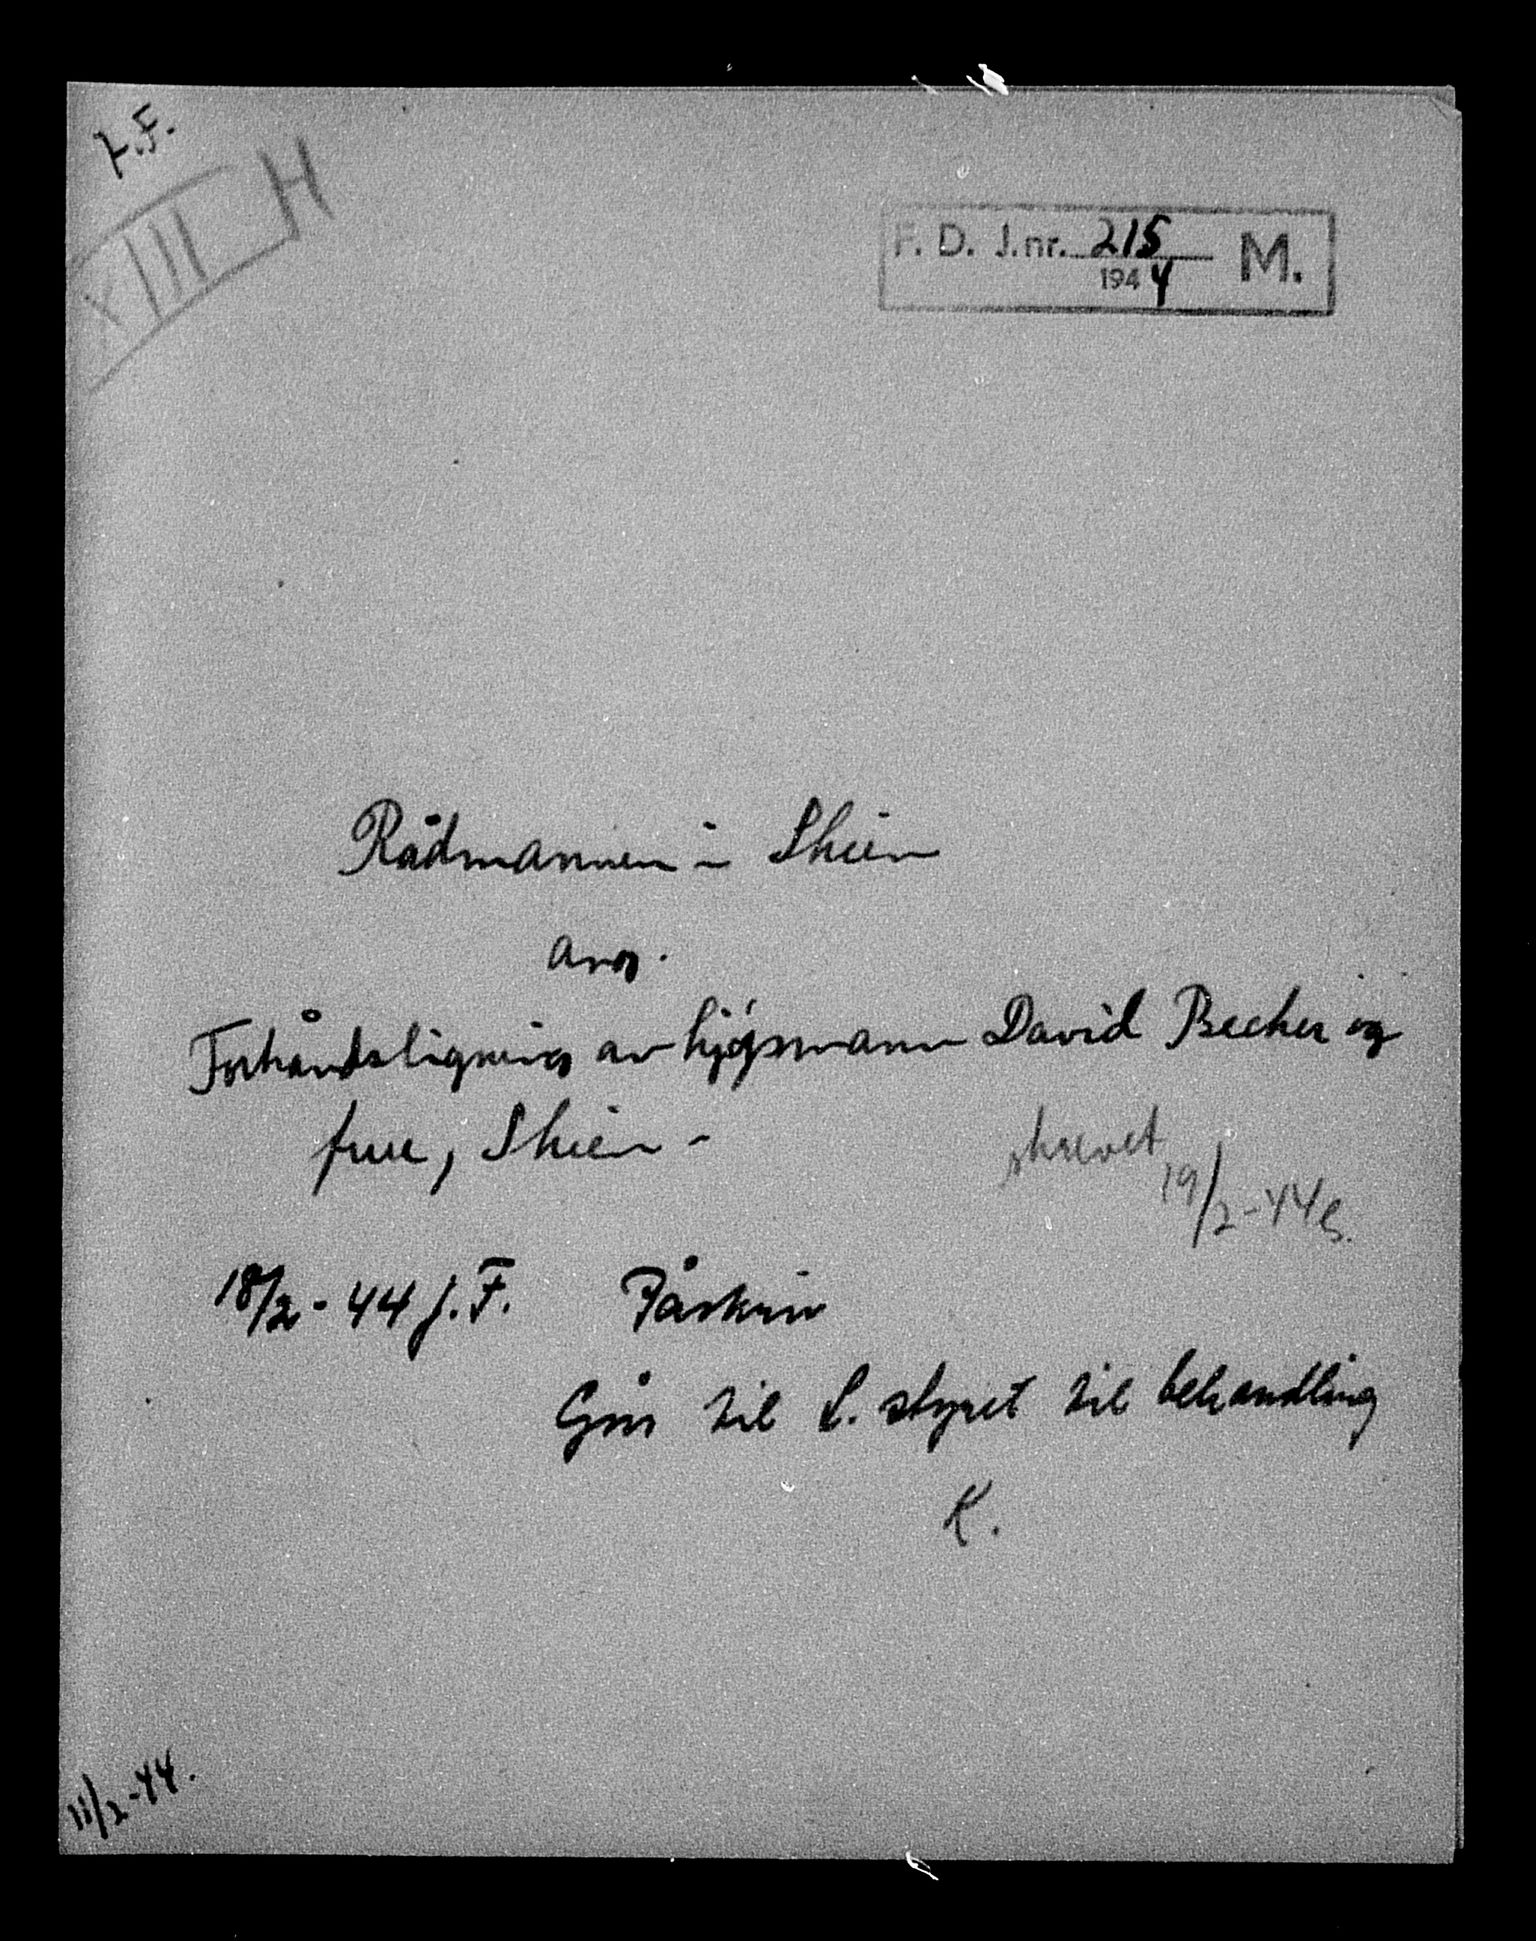 J.F.
XIII H
F. D. J.nr. 215 M.
1944
Rådmannen i Skien
ang.
Forhåndsligning av kjøpmann David Becker og
frue, Skien -
skrevet
19/2-44
18/2-44 J.F. Påskriv
Går til S. styret til behandling
K.
11/2-44.